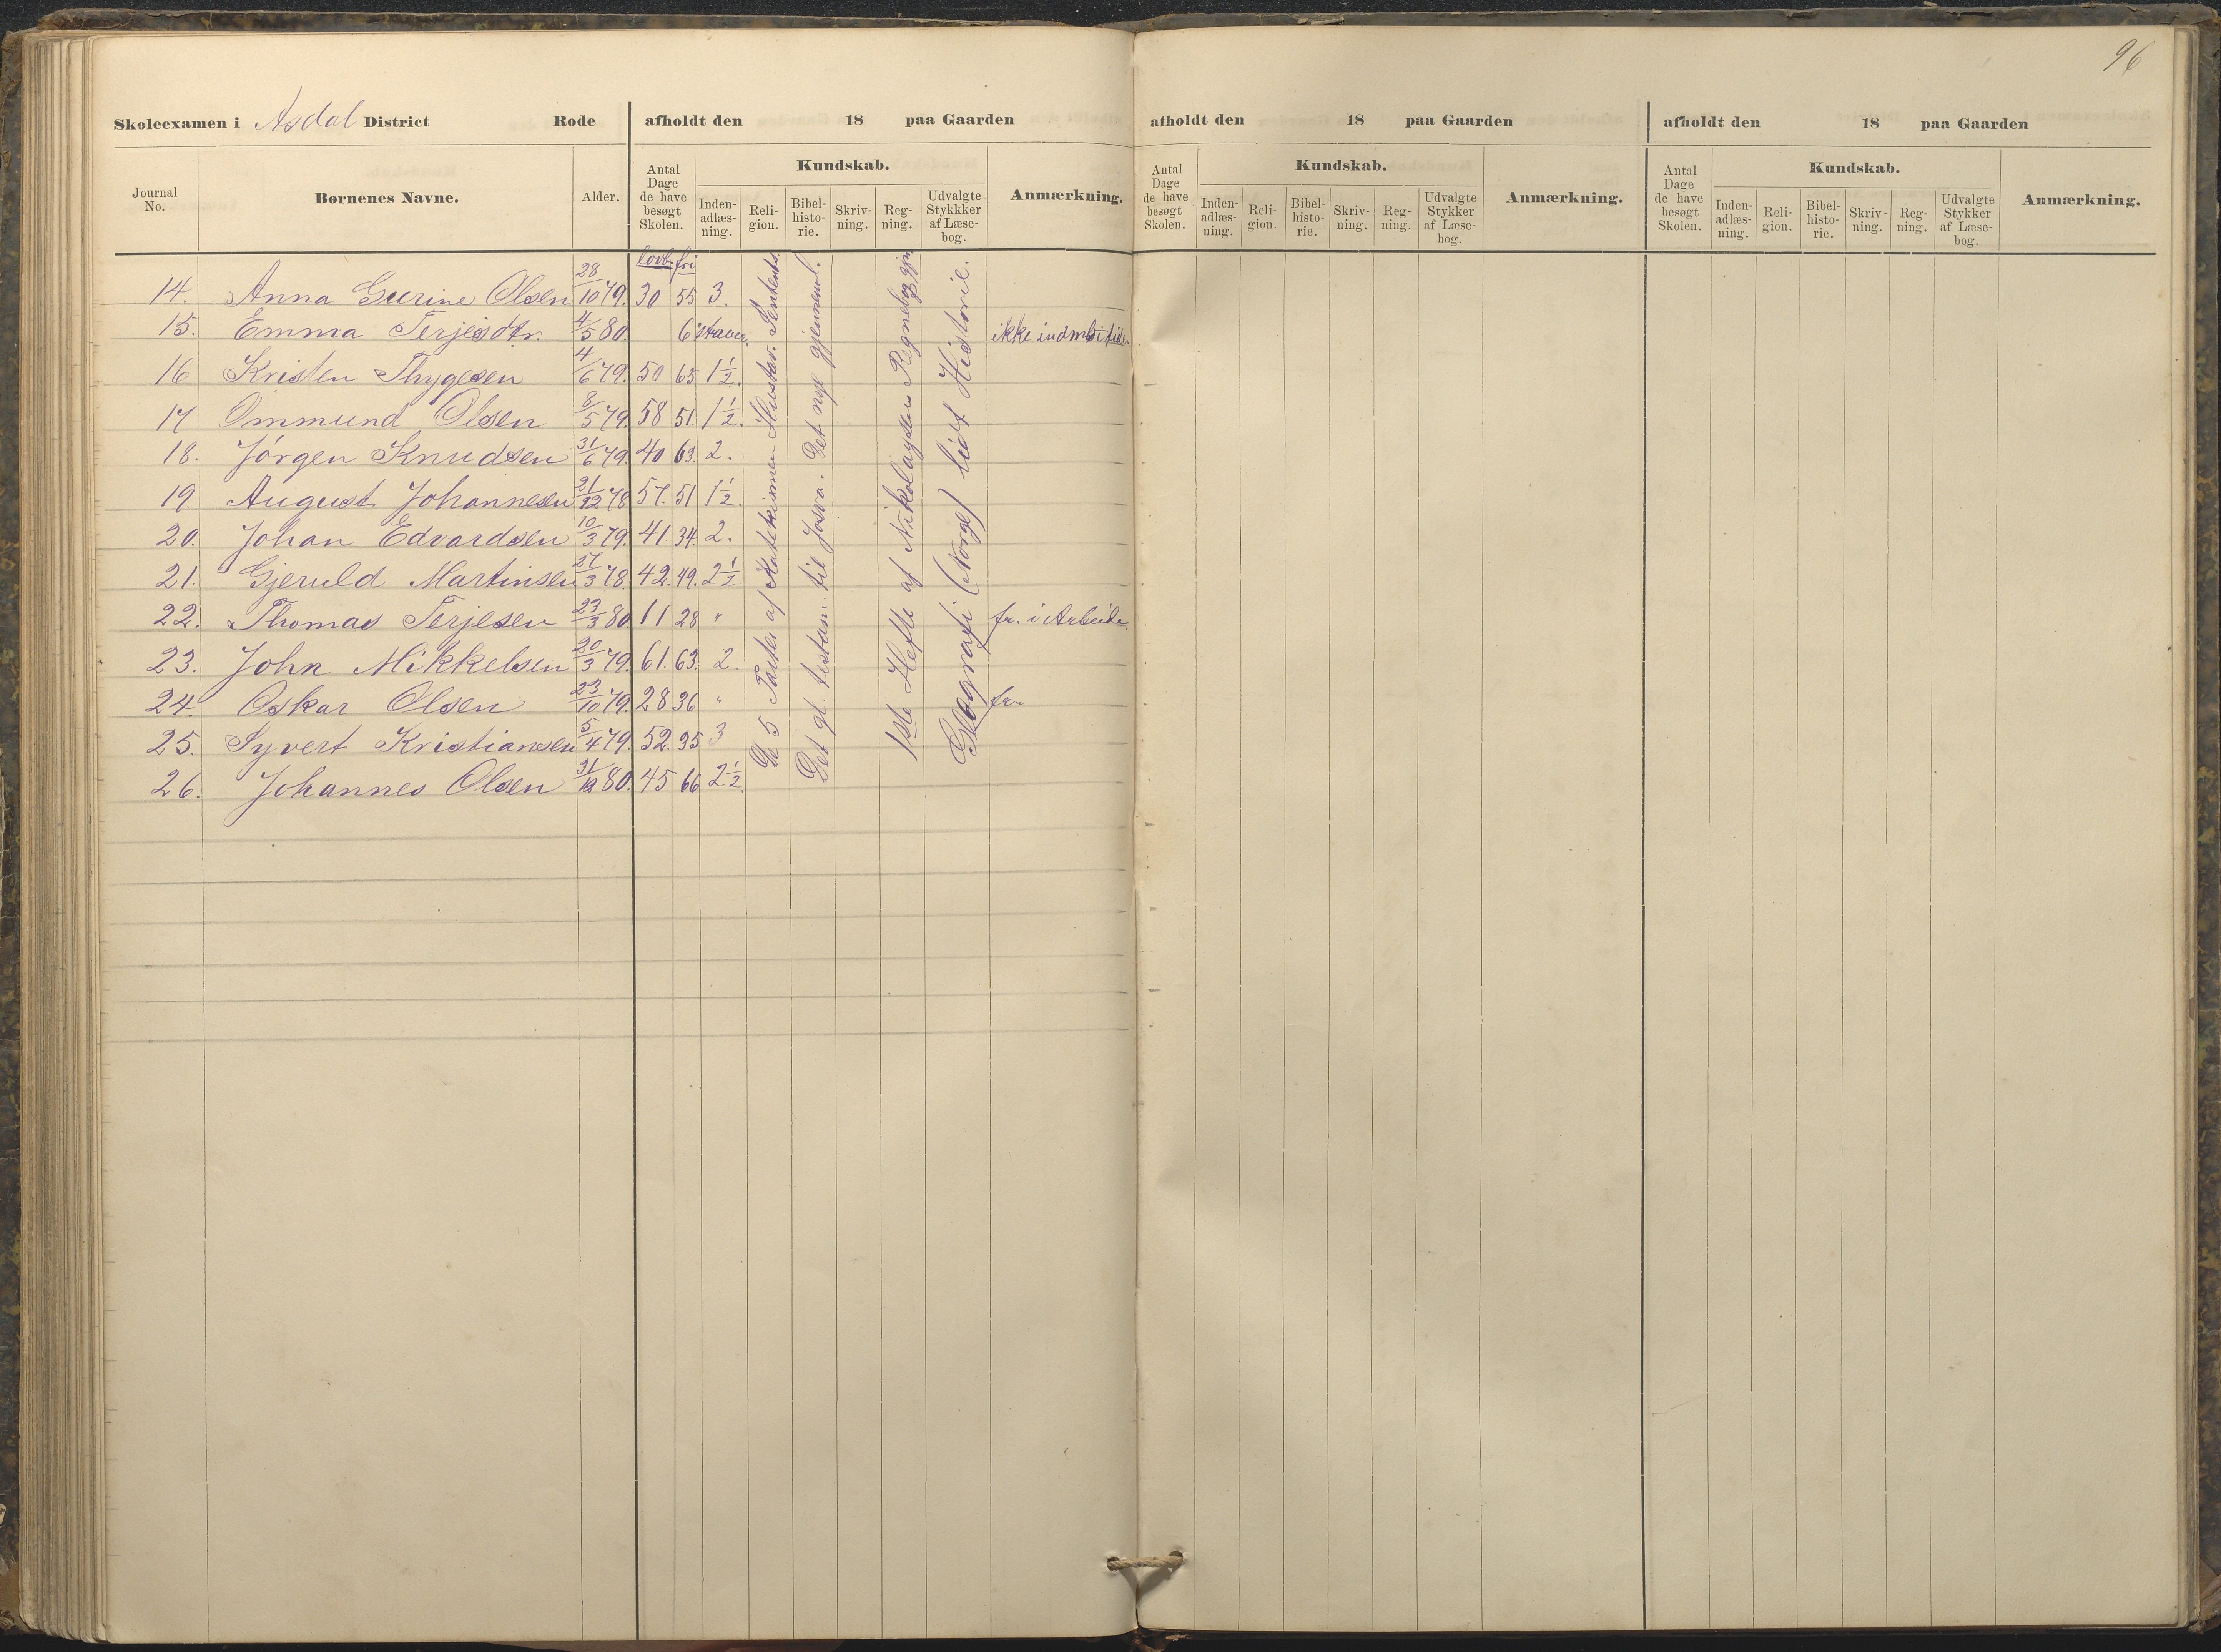 96
Skoleexamen i Asdal District Rode afholdt den 18 paa Gaarden afholdt den 18 paa Gaarden afholdt den 18 paa Gaarden
Journal No. Børnenes Navne. Alder. Antal Dage de have besøgt Skolen. Kundskab. Inden-adlæs-ning. Reli-gion. Bibel-histo-rie. Skriv-ning. Reg-ning. Udvalgte Stykkker af Læse-bog. Anmærkning.
Antal Dage de have besøgt Skolen. Kundskab. Inden-adlæs-ning. Reli-gion. Bibel-histo-rie. Skriv-ning. Reg-ning. Udvalgte Stykker af Læse-bog. Anmærkning.
Antal Dage de have besøgt Skolen. Kundskab. Inden-adlæs-ning. Reli-gion. Bibel-histo-rie. Skriv-ning. Reg-ning. Udvalgte Stykker af Læse-bog. Anmærkning.
lovb. fri
14. Anna Gurine Olsen 28/10 79. 30 55 3.
15. Emma Terjesdtr. 4/5 80. 6 staver. ikke indm. i
16 Kristen Thygesen 4/6 79. 50 65 1½.
17 Ommund Olsen 8/5 79. 58 51. 1½.
18. Jörgen Knudsen 31/6 79. 40 63. 2.
19 August Johannesen 21/12 78 57. 51 1½.
20. Johan Edvardsen 10/3 79. 41. 34. 2.
21. Gjeruld Martinsen 27/3 78. 42. 49. 2½
22. Thomas Terjesen 23/3 80. 11 28 " fr. i Arbeide.
23. John Mikkelsen 20/3 79. 61. 63. 2.
24. Oskar Olsen 23/10 79. 28 36 " fr.
25. Syvert Kristiansen 5/4 79. 52. 35 3
26. Johannes Olsen 31/12 80. 45 66 2½.
De 5 Parter af Katekismen
Det gl. testam. til Josva. Det nye gjennem.
1ste Hefte af Nikolaysens Regnebog
Geografi (Norge) lidt Historie.